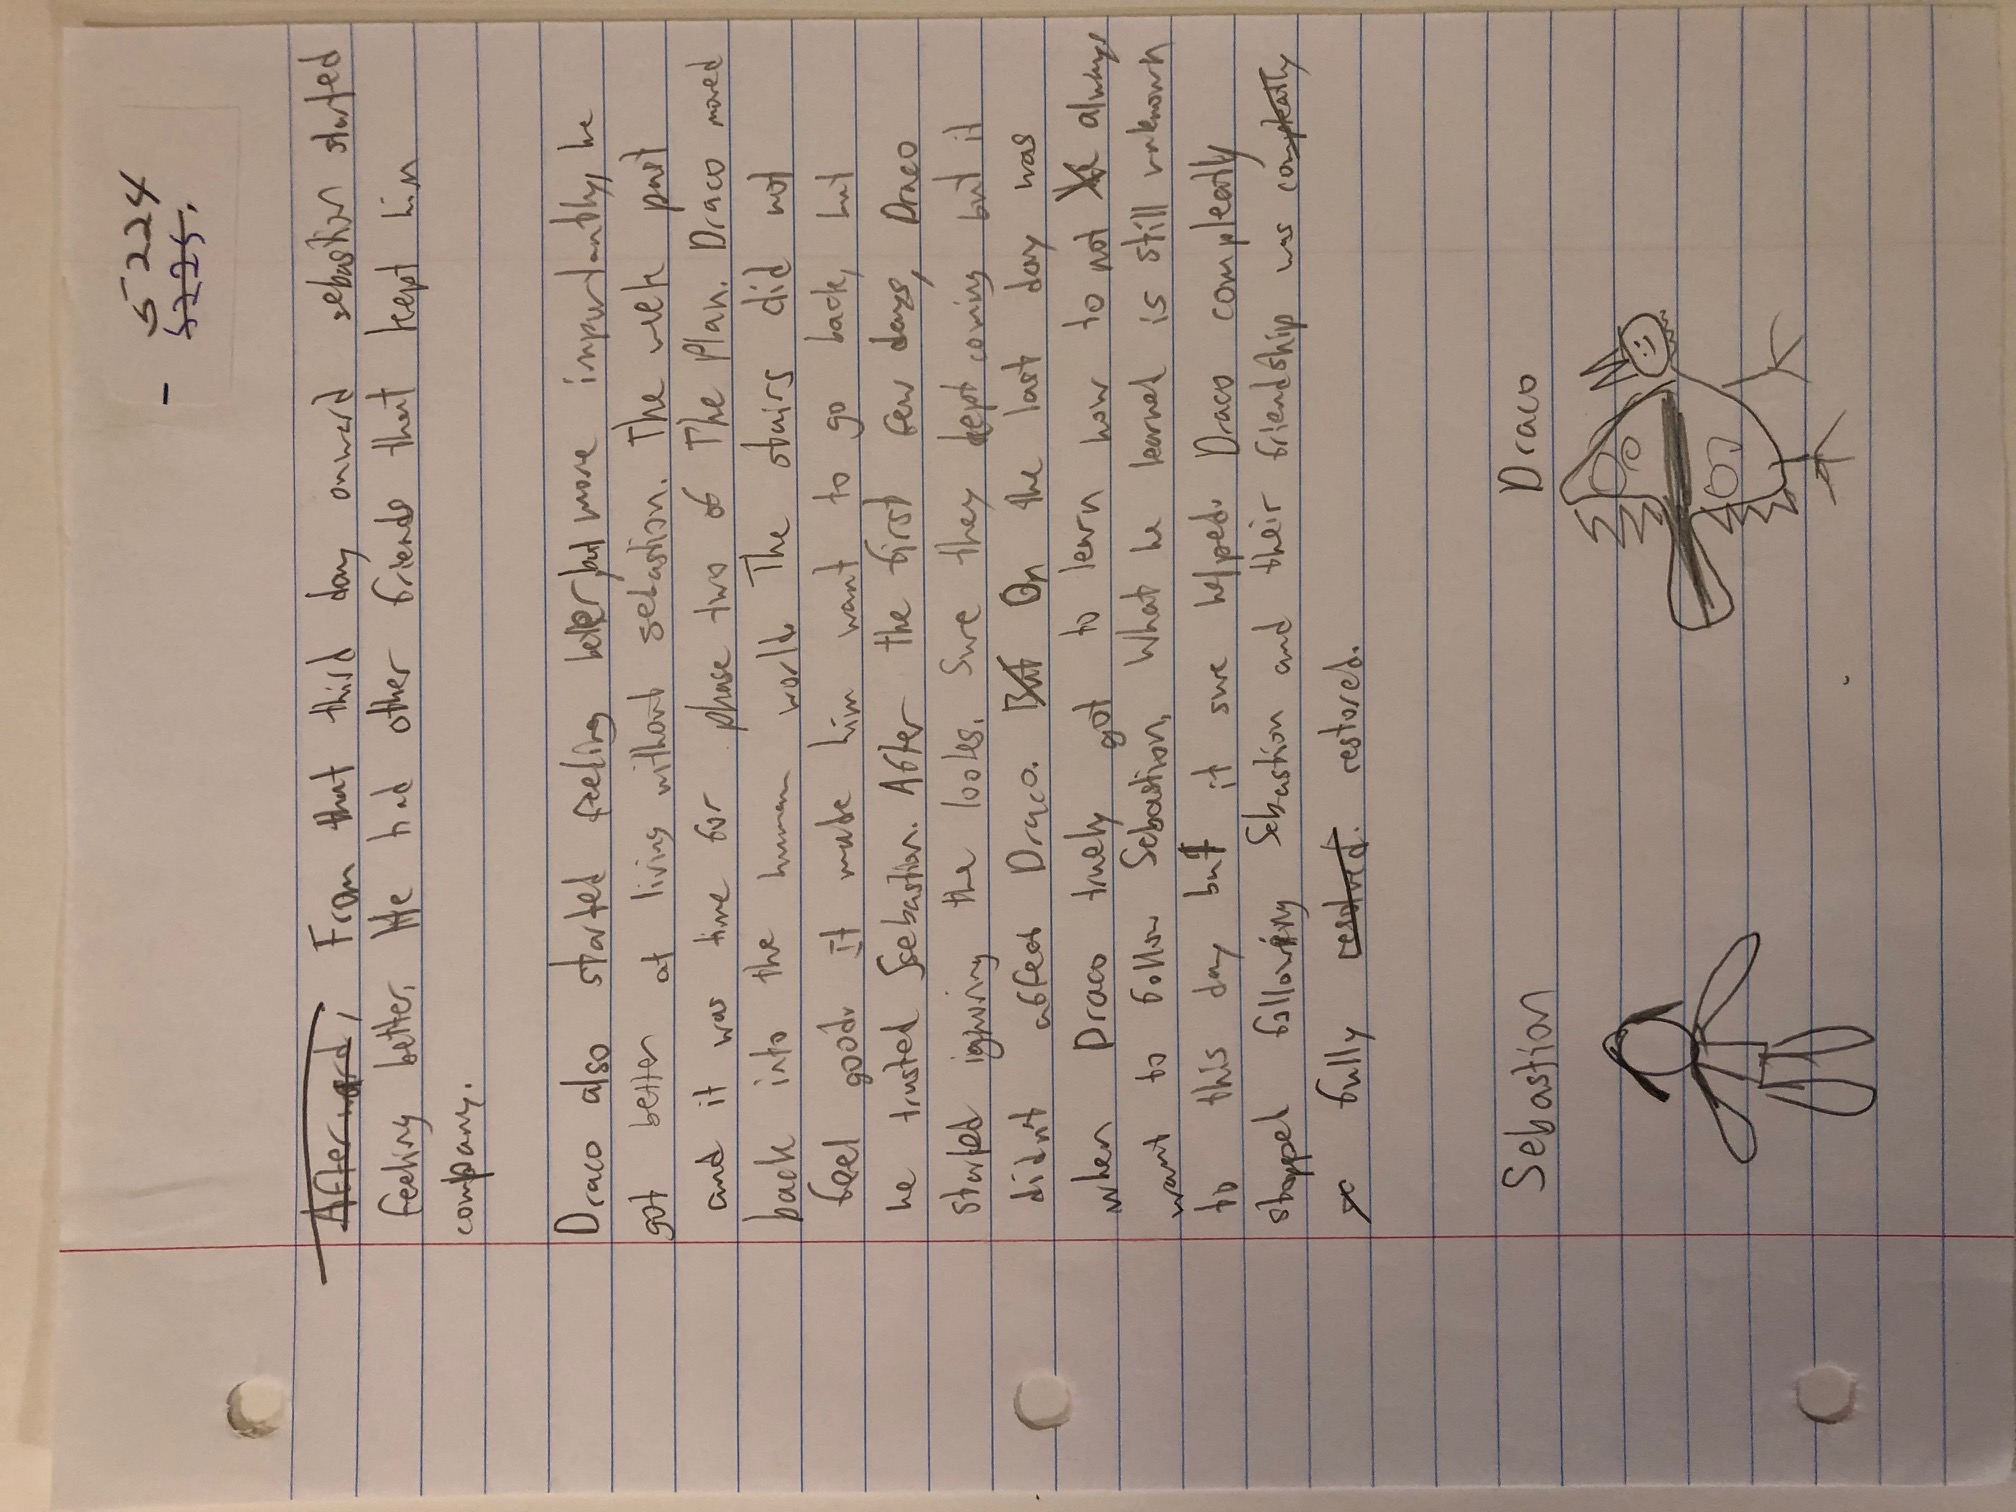 - 5224
5225.
Afterward, From that third day onward sebastion started
feeling better. He had other friends that kept him
company.
Draco also started feeling better, but more importantly, he
got better at living without sebastion. The week past
and it was time for phase two of The Plan. Draco moved
back into the human world. The stairs did not
feel good. it made him want to go back, but
he trusted Sebastion. After the first few days, Draco
started ignoring the looks. Sure they kept coming but it
didn't affect Draco. But On the last day was
when Draco truely got to learn how to not always
want to follow Sebastion. What he learned is still unknown
to this day but it sure helped. Draco compleatly
stopped following Sebastion and their friendship was compleatly
fully resolved. restored.
Sebastion Draco